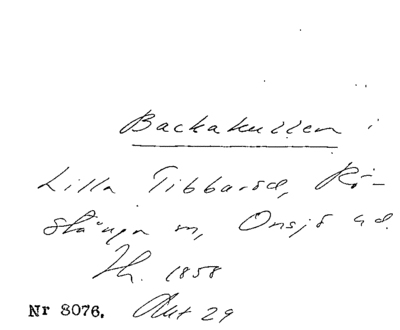 Backakullen i
Lilla Tibbaröd, Rö-
stånga sn, Onsjö hd.
Th. 1858
Nr 8076. Okt 29